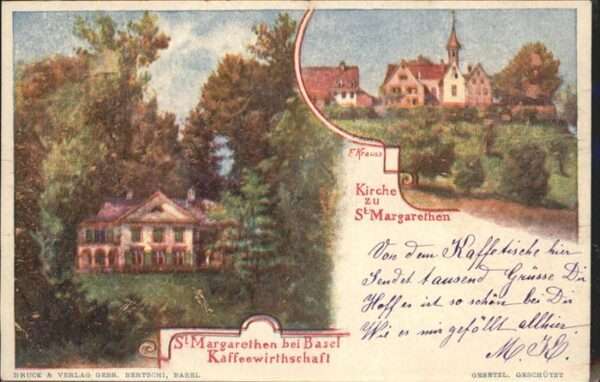 F. Kraus
Kirche
zu
St Margarethen
Von dem Kaffetische hier
Sendet tausend Grüsse Dir
Hoff es ist so schön bei Dir
Wie es mir gefällt allhier.
St Margarethen bei Basel
Kaffeewirthschaft
DRUCK & VERLAG GEBR. BERTSCHI, BASEL
GESETZL. GESCHÜTZT